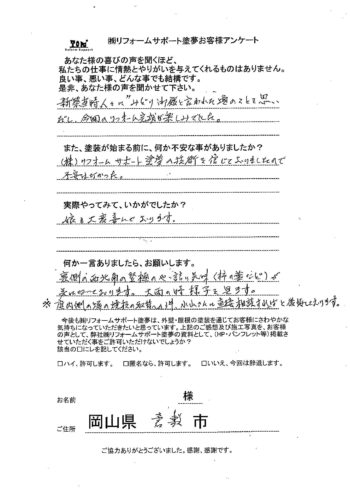 ㈱リフォームサポート塗夢お客様アンケート
あなた様の喜びの声を聞くほど、
私たちの仕事に情熱とやりがいを与えてくれるものはありません。
良い事、悪い事、どんな事でも結構です。
是非、あなた様の声を聞かせて下さい。
今回のリフォーム完成が楽しみでした。
また、塗装が始まる前に、何か不安な事がありましたか?
(株)リフォームサポート塗夢の技術を信じておりましたので
不安はなかった。
実際やってみて、いかがでしたか?
娘も大変喜んでおります。
何か一言ありましたら、お願いします。
裏側の西北角の竪樋
おります。大雨の時様子を見ます。
直接相談すれば と後悔しております。
今後も㈱リフォームサポート塗夢は、外壁・屋根の塗装を通じてお客様にさわやかな
気持ちになっていただきたいと思っています。上記のご感想及び施工写真を、お客様
の声として、弊社㈱リフォームサポート塗夢の資料として、(HP・パンフレット等)掲載さ
せていただく事をご許可いただけないでしょうか?
該当の□にレを記してください。
□ハイ、許可します。 □匿名なら、許可します。 □いいえ、今回は辞退します。
お名前 様
ご住所 岡山県 倉敷 市
ご協力ありがとうございました。感謝、感謝です。